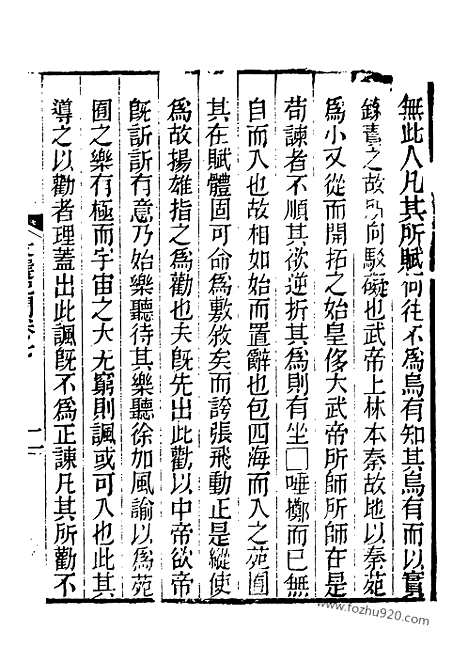 無此人凡其所賦何往不為烏有知其烏有而以實
錄責之故所向駁礙也武帝上林本秦故地以秦苑
爲小又從而開拓之始皇侈大武帝所師所師在是
苟諫者不順其欲逆折其爲則有坐□唾擲而已無
自而入也故相如始而置辭也包四海而入之苑囿
其在賦體固可命爲敷敘矣而誇張飛動正是縱使
爲故揚雄指之爲勸也夫旣先出此勸以中帝欲帝
旣訢訢有意乃始樂聽待其樂聽徐加風諭以爲苑
囿之樂有極而宇宙之大无窮則諷或可入也此其
導之以勸者理蓋出此諷旣不爲正諫凡其所勸不
卷七
www.fozhu920.com